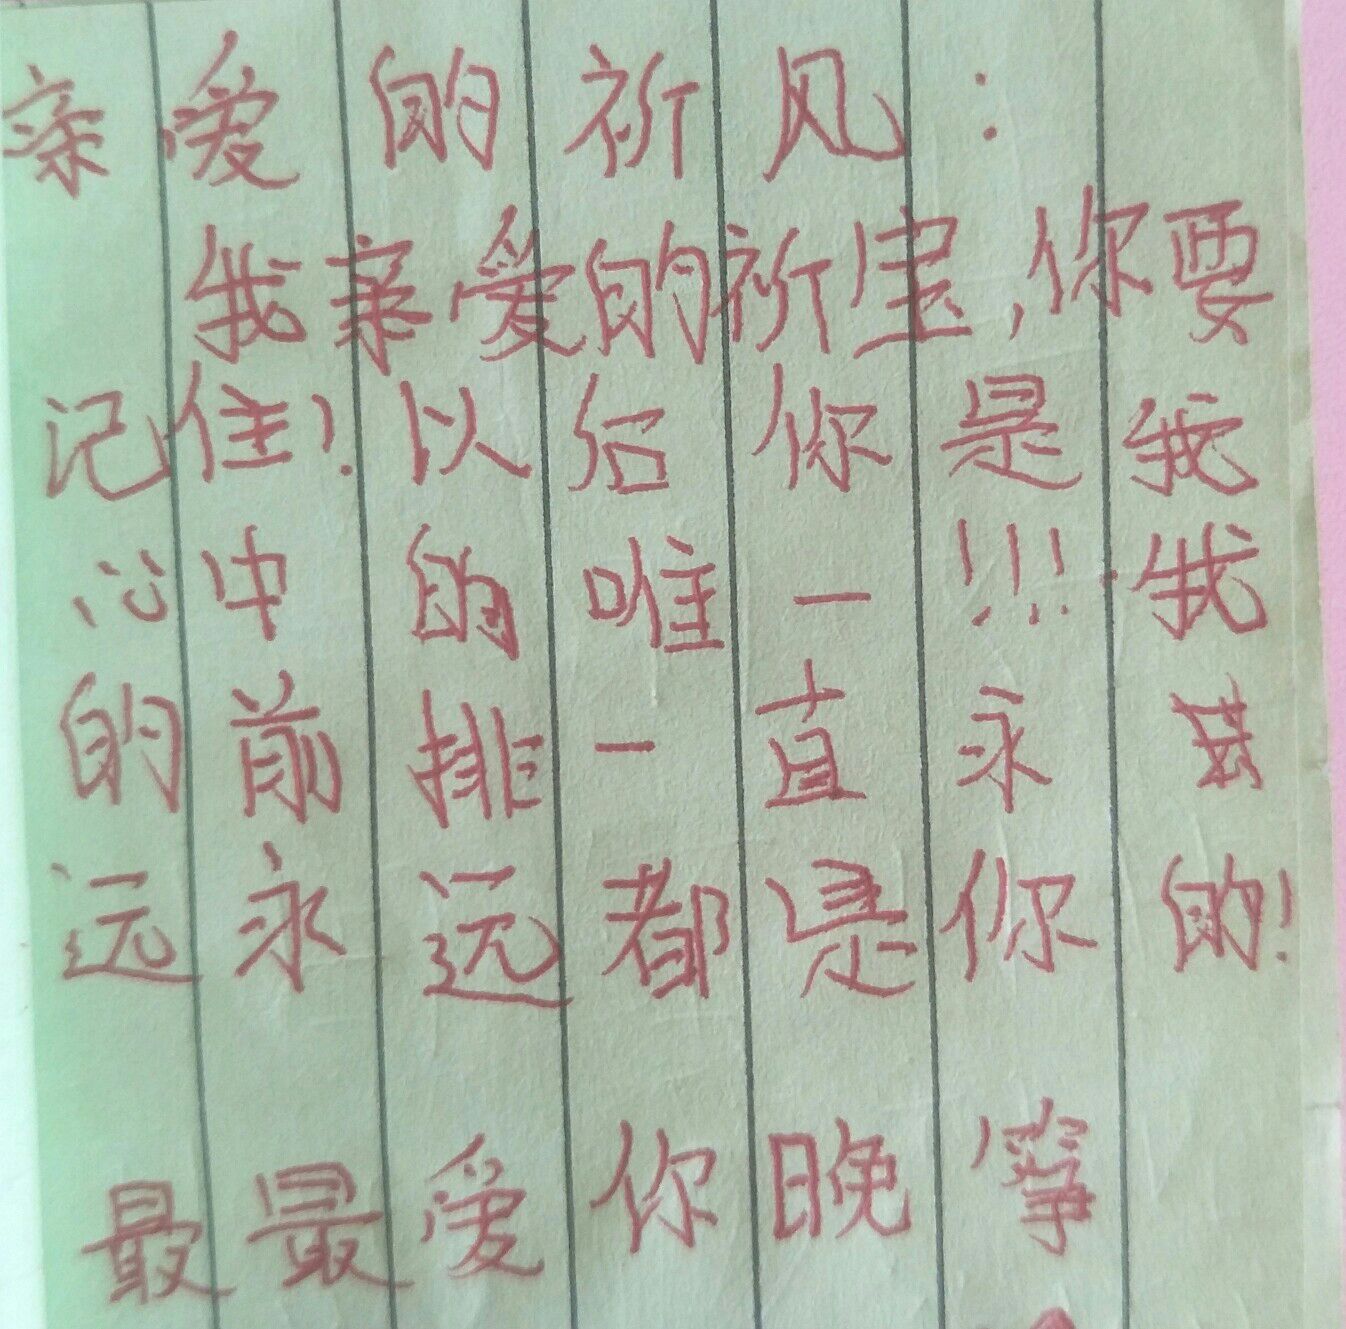 亲爱的祈风：
我亲爱的祈宝,你要
记住！以后你是我
心中的唯一!!!我
的前排一直永
远永远都是你的!
最最爱你晚筝